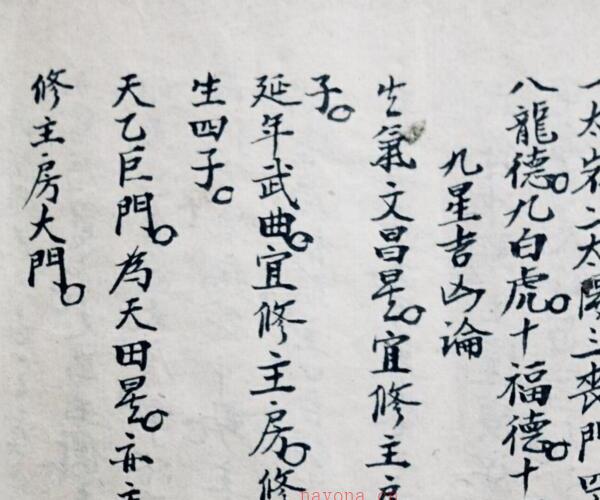 太岩二太陽三喪門四
八龍德。九白虎。十福德。十
九星吉凶論
生氣文昌星。宜修主房
子。
延年武曲。宜修主房。修
生四子。
天乙巨門。為天田星。亦主
修主房大門。